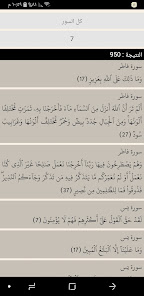 كل السور
7
النتيجة : 950
سورة فاطر
وَمَا ذَلِكَ عَلَى اللَّهِ بِعَزِيزٍ (17)
سورة فاطر
أَلَمْ تَرَ أَنَّ اللَّهَ أَنْزَلَ مِنَ السَّمَاءِ مَاءً فَأَخْرَجْنَا بِهِ ثَمَرَاتٍ مُخْتَلِفًا
أَلْوَانُهَا وَمِنَ الْجِبَالِ جُدَدٌ بِيضٌ وَحُمْرٌ مُخْتَلِفٌ أَلْوَانُهَا وَغَرَابِيبُ
سُودٌ (27)
سورة فاطر
وَهُمْ يَصْطَرِخُونَ فِيهَا رَبَّنَا أَخْرِجْنَا نَعْمَلْ صَالِحًا غَيْرَ الَّذِي كُنَّا
نَعْمَلُ أَوَلَمْ نُعَمِّرْكُمْ مَا يَتَذَكَّرُ فِيهِ مَنْ تَذَكَّرَ وَجَاءَكُمُ النَّذِيرُ
فَذُوقُوا فَمَا لِلظَّالِمِينَ مِنْ نَصِيرٍ (37)
سورة يس
لَقَدْ حَقَّ الْقَوْلُ عَلَى أَكْثَرِهِمْ فَهُمْ لَا يُؤْمِنُونَ (7)
سورة يس
وَمَا عَلَيْنَا إِلَّا الْبَلَاغُ الْمُبِينُ (17)
سورة يس